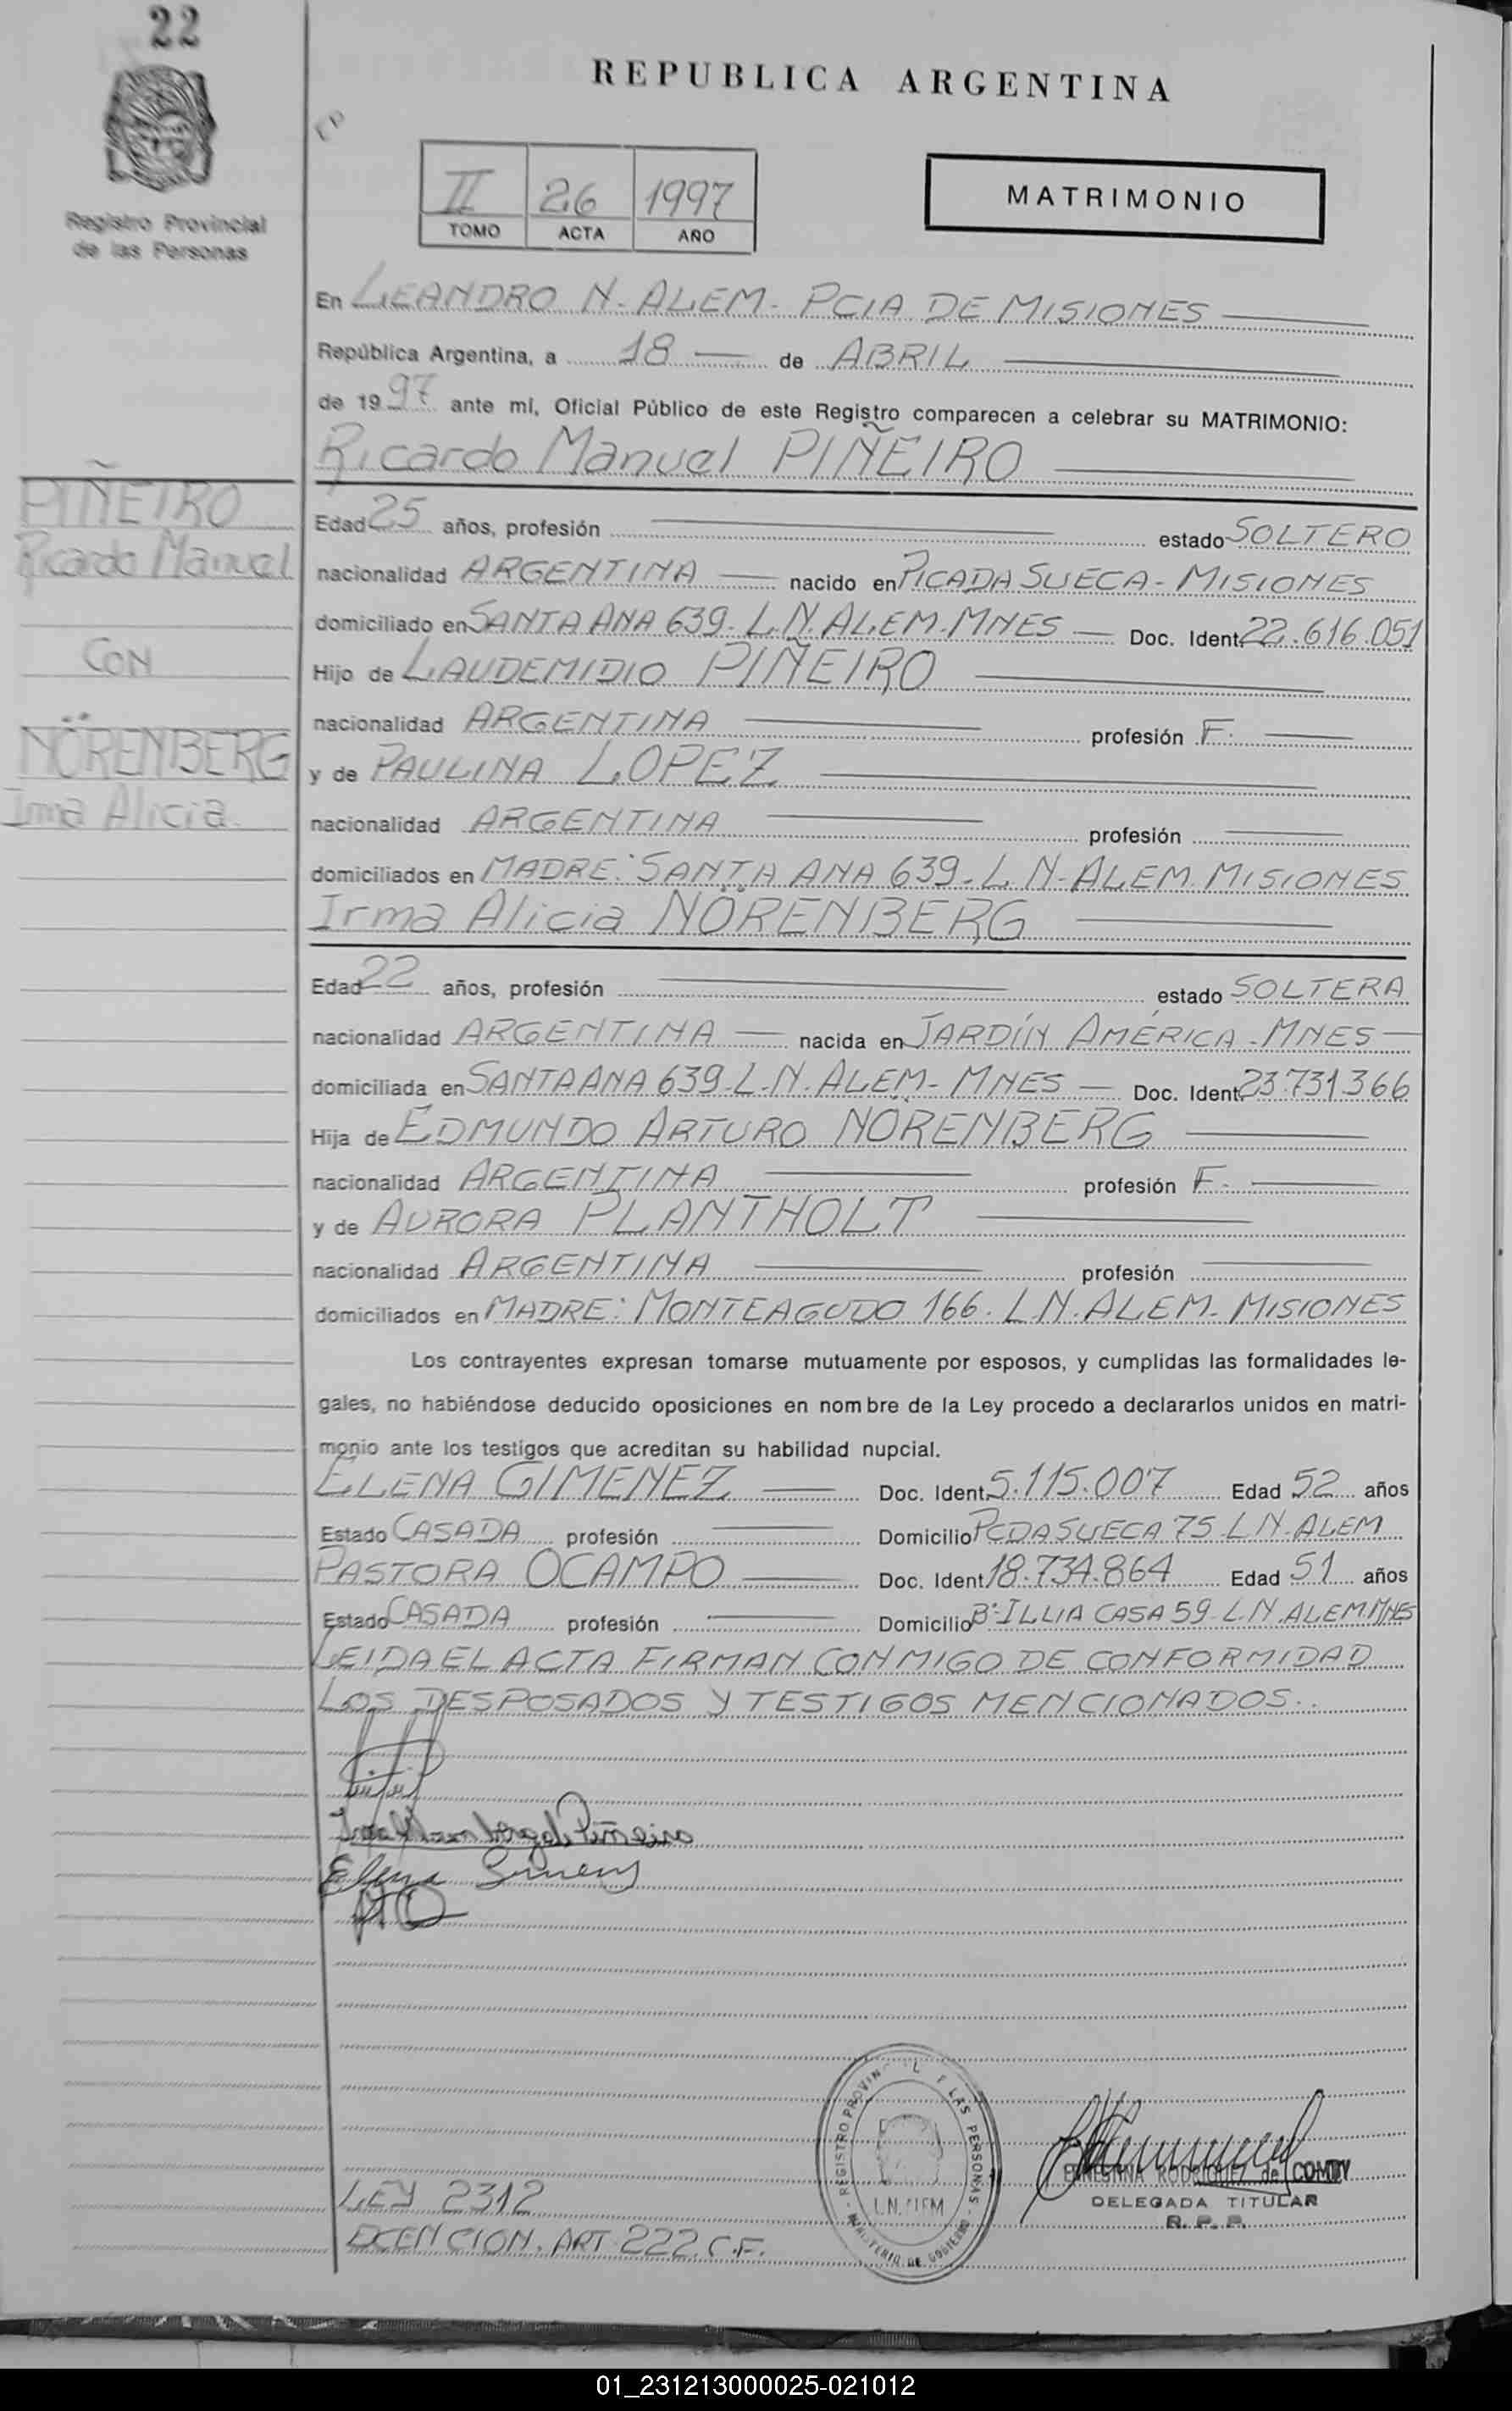 22
REPUBLICA ARGENTINA
Registro Provincial
de las Personas
II 26 1997
TOMO ACTA AÑO
MATRIMONIO
En LEANDRO N. ALEM - PCIA DE MISIONES
República Argentina, a 18 de ABRIL
de 1997 ante mí, Oficial Público de este Registro comparecen a celebrar su MATRIMONIO:
Ricardo Manuel PIÑEIRO
PIÑEIRO
Ricardo Manuel
CON
NÖRENBERG
Irma Alicia
Edad 25 años, profesión estado SOLTERO
nacionalidad ARGENTINA nacido en PICADA SUECA - MISIONES
domiciliado en SANTA ANA 639 - L.N. ALEM - MNES Doc. Ident. 22.616.051
Hijo de LAUDEMIDIO PIÑEIRO
nacionalidad ARGENTINA profesión F.
y de PAULINA LOPEZ
nacionalidad ARGENTINA profesión
domiciliados en MADRE: SANTA ANA 639 - L.N. ALEM. MISIONES
Irma Alicia NÖRENBERG
Edad 22 años, profesión estado SOLTERA
nacionalidad ARGENTINA nacida en JARDÍN AMÉRICA - MNES
domiciliada en SANTA ANA 639 - L.N. ALEM - MNES Doc. Ident. 23.731.366
Hija de EDMUNDO ARTURO NÖRENBERG
nacionalidad ARGENTINA profesión F.
y de AURORA PLANTHOLT
nacionalidad ARGENTINA profesión
domiciliados en MADRE: MONTEAGUDO 166. L.N. ALEM - MISIONES
Los contrayentes expresan tomarse mutuamente por esposos, y cumplidas las formalidades le-
gales, no habiéndose deducido oposiciones en nombre de la Ley procedo a declararlos unidos en matri-
monio ante los testigos que acreditan su habilidad nupcial.
ELENA GIMENEZ Doc. Ident. 5.115.007 Edad 52 años
Estado CASADA profesión Domicilio PCDA SUECA 75 - L.N. ALEM
PASTORA OCAMPO Doc. Ident. 18.734.864 Edad 51 años
Estado CASADA profesión Domicilio Bº ILLIA CASA 59 - L.N. ALEM. MNES
LEIDA EL ACTA FIRMAN CONMIGO DE CONFORMIDAD
LOS DESPOSADOS Y TESTIGOS MENCIONADOS..
Piñeiro
Elena
REGISTRO PROVIN L LAS PERSONAS
L.N. ALEM
MINISTERIO DE GOBIERNO
RODRIGUEZ de
DELEGADA TITULAR
R. P. P.
LEY 2312
EXENCION. ART 222. C.F.
01_231213000025-021012